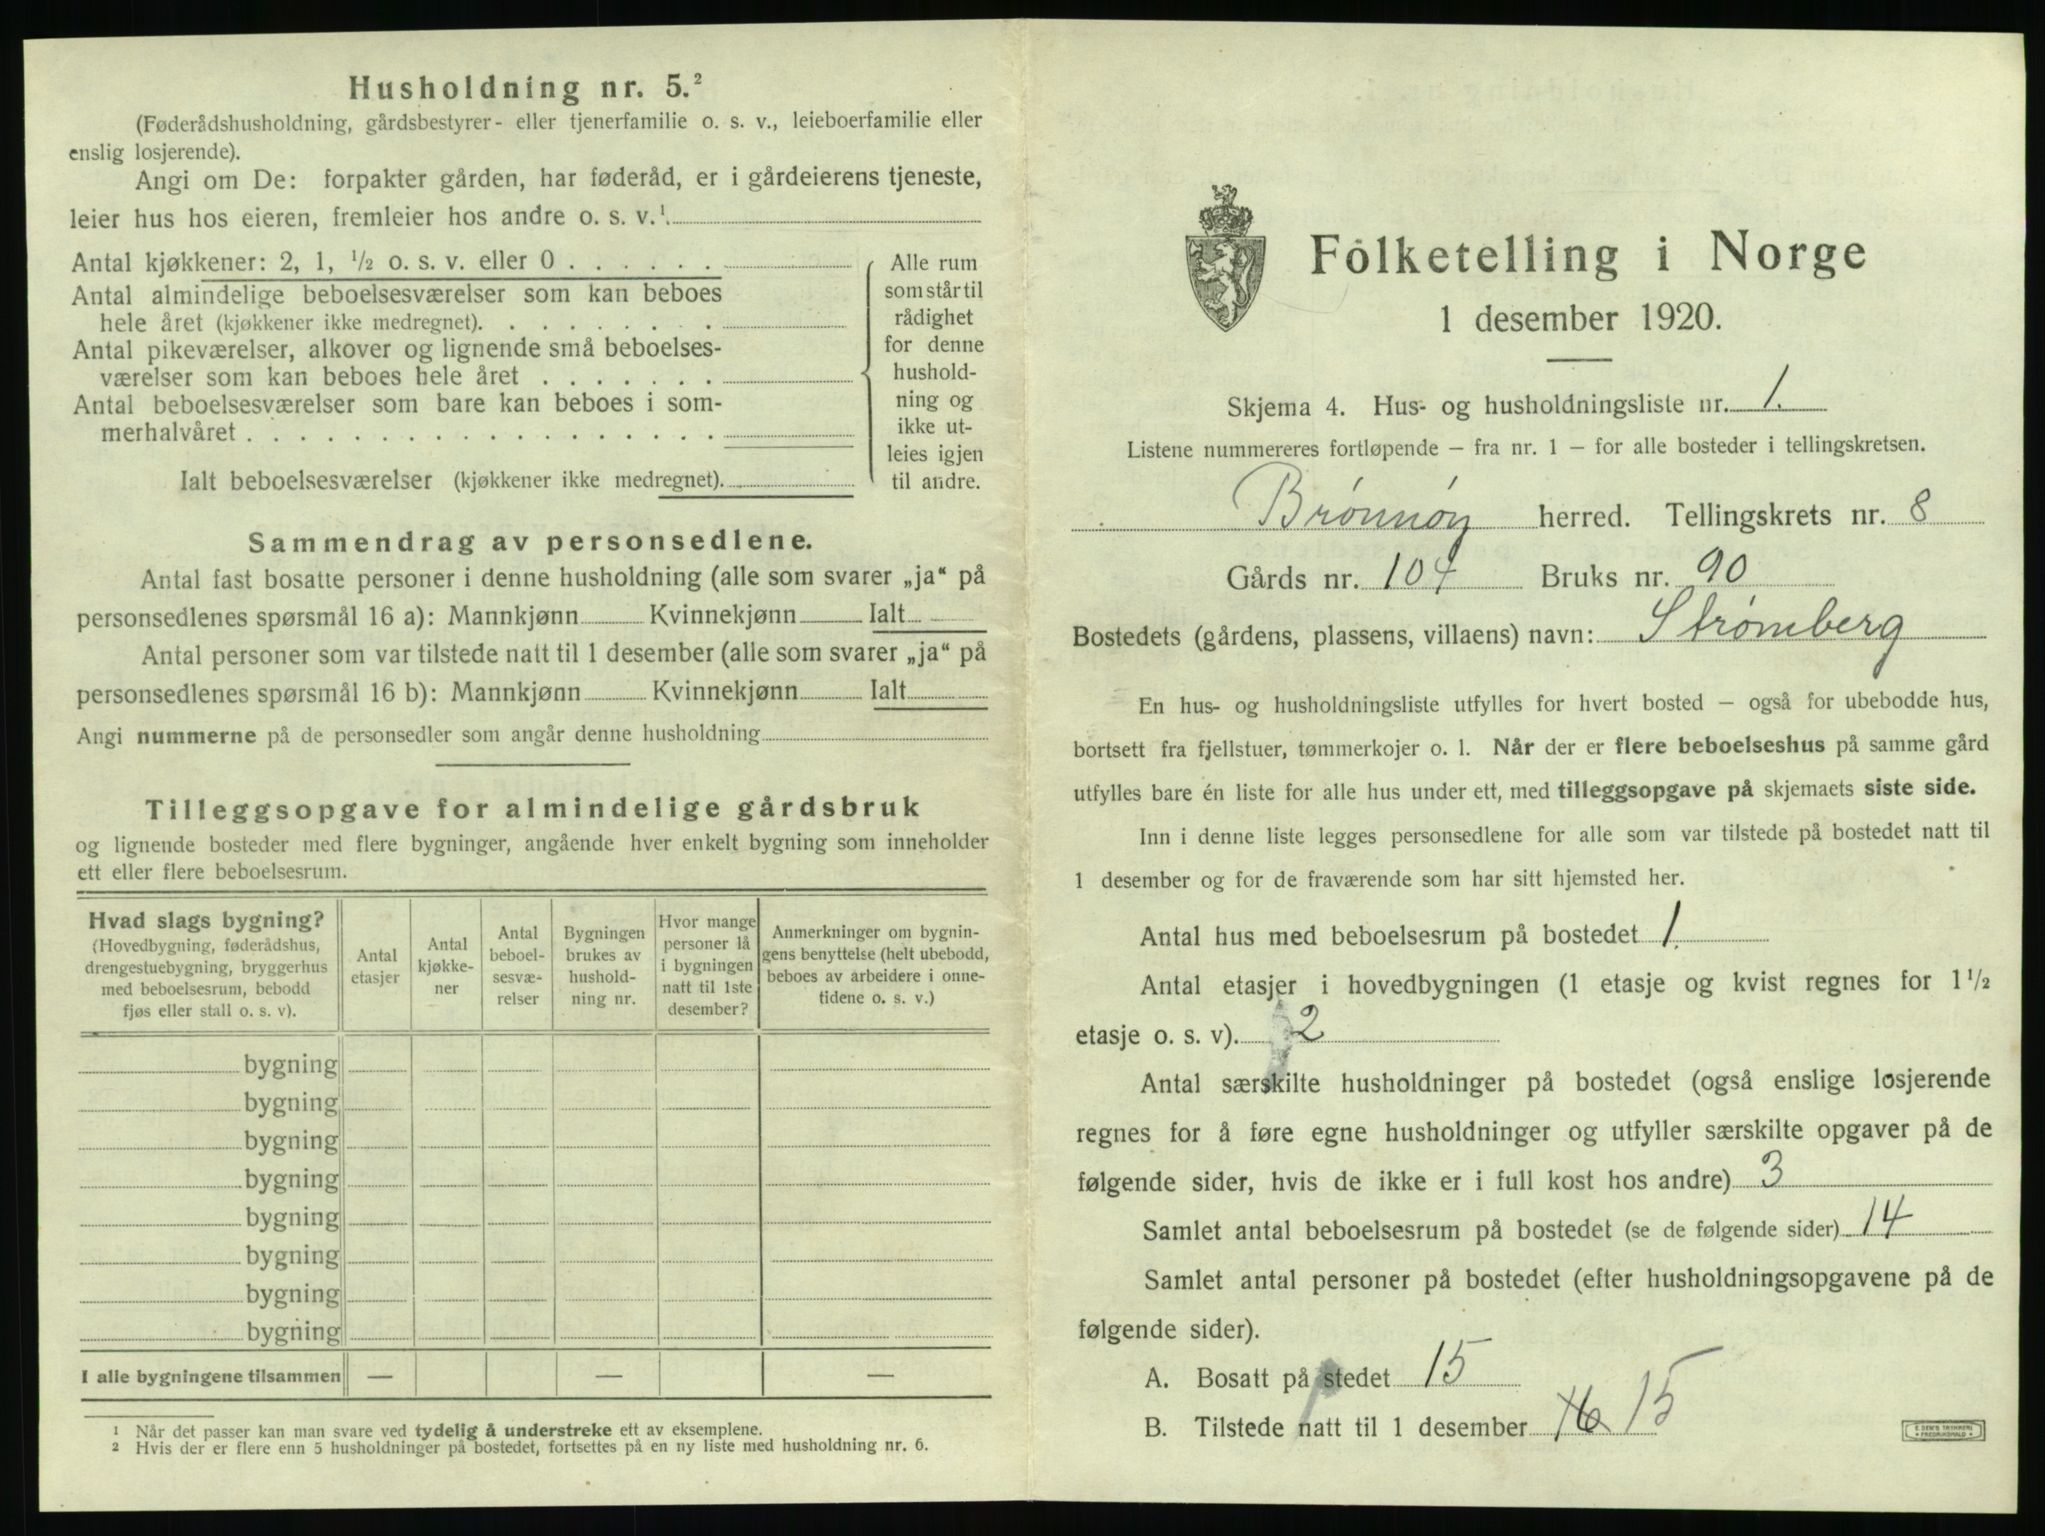 Husholdning nr. 5.²
(Føderådshusholdning, gårdsbestyrer- eller tjenerfamilie o. s. v., leieboerfamilie eller
enslig losjerende).
Angi om De: forpakter gården, har føderåd, er i gårdeierens tjeneste,
leier hus hos eieren, fremleier hos andre o. s. v.¹.
Antal kjøkkener: 2, 1, ½ o. s. v. eller 0 . . . . . .
Antal almindelige beboelsesværelser som kan beboes
hele året (kjøkkener ikke medregnet). . . . . . . . .
Antal pikeværelser, alkover og lignende små beboelses-
værelser som kan beboes hele året . . . . . . .
Antal beboelsesværelser som bare kan beboes i som-
merhalvåret . . . . . . . . . . . . . . . . . .
Ialt beboelsesværelser (kjøkkener ikke medregnet).
Alle rum
som står til
rådighet
for denne
hushold-
ning og
ikke ut-
leies igjen
til andre.
Sammendrag av personsedlene.
Antal fast bosatte personer i denne husholdning (alle som svarer „ja“ på
personsedlenes spørsmål 16 a): Mannkjønn Kvinnekjønn Ialt
Antal personer som var tilstede natt til 1 desember (alle som svarer „ja“ på
personsedlenes spørsmål 16 b): Mannkjønn Kvinnekjønn Ialt
Angi nummerne på de personsedler som angår denne husholdning
Tilleggsopgave for almindelige gårdsbruk
og lignende bosteder med flere bygninger, angående hver enkelt bygning som inneholder
ett eller flere beboelsesrum.
Hvad slags bygning?
(Hovedbygning, føderådshus,
drengestuebygning, bryggerhus
med beboelsesrum, bebodd
fjøs eller stall o. s. v).
Antal
etasjer
Antal
kjøkke-
ner
Antal
beboel-
sesvæ-
relser
Bygningen
brukes av
hushold-
ning nr.
Hvor mange
personer lå
i bygningen
natt til 1ste
desember?
Anmerkninger om bygnin-
gens benyttelse (helt ubebodd,
beboes av arbeidere i onne-
tidene o. s. v.)
bygning
bygning
bygning
bygning
bygning
bygning
bygning
bygning
I alle bygningene tilsammen — — —
¹ Når det passer kan man svare ved tydelig å understreke ett av eksemplene.
² Hvis der er flere enn 5 husholdninger på bostedet, fortsettes på en ny liste med husholdning nr. 6.
Folketelling i Norge
1 desember 1920.
Skjema 4. Hus- og husholdningsliste nr. 1.
Listene nummereres fortløpende – fra nr. 1 – for alle bosteder i tellingskretsen.
Brønnøy herred. Tellingskrets nr. 8
Gårds nr. 104 Bruks nr. 90
Bostedets (gårdens, plassens, villaens) navn: Strømberg
En hus- og husholdningsliste utfylles for hvert bosted – også for ubebodde hus,
bortsett fra fjellstuer, tømmerkojer o. l. Når der er flere beboelseshus på samme gård
utfylles bare én liste for alle hus under ett, med tilleggsopgave på skjemaets siste side.
Inn i denne liste legges personsedlene for alle som var tilstede på bostedet natt til
1 desember og for de fraværende som har sitt hjemsted her.
Antal hus med beboelsesrum på bostedet 1.
Antal etasjer i hovedbygningen (1 etasje og kvist regnes for 1½
etasje o. s. v). 2
Antal særskilte husholdninger på bostedet (også enslige losjerende
regnes for å føre egne husholdninger og utfyller særskilte opgaver på de
følgende sider, hvis de ikke er i full kost hos andre) 3
Samlet antal beboelsesrum på bostedet (se de følgende sider) 14
Samlet antal personer på bostedet (efter husholdningsopgavene på de
følgende sider).
A. Bosatt på stedet 15
B. Tilstede natt til 1 desember 16 15